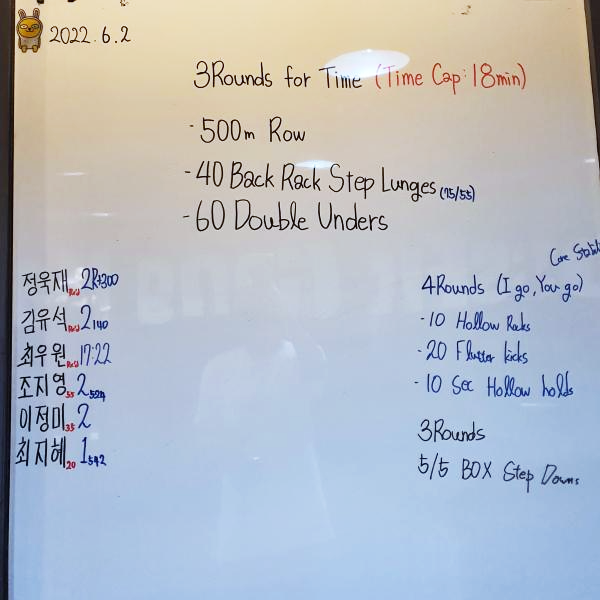 2022.6.2
3Rounds for Time (Time Cap: 18min)
- 500m Row
- 40 Back Rack Step Lunges (75/55)
- 60 Double Unders
정욱재 Rxd 2R+300
김유석 Rxd 2 140
최우원 Rxd 17:22
조지영 55 2 524
이정미 35 2
최지혜 20 1 542
Core
4Rounds (I go, You go)
- 10 Hollow Rocks
- 20 Flutter kicks
- 10 Sec Hollow holds
3Rounds
5/5 BOX Step Downs